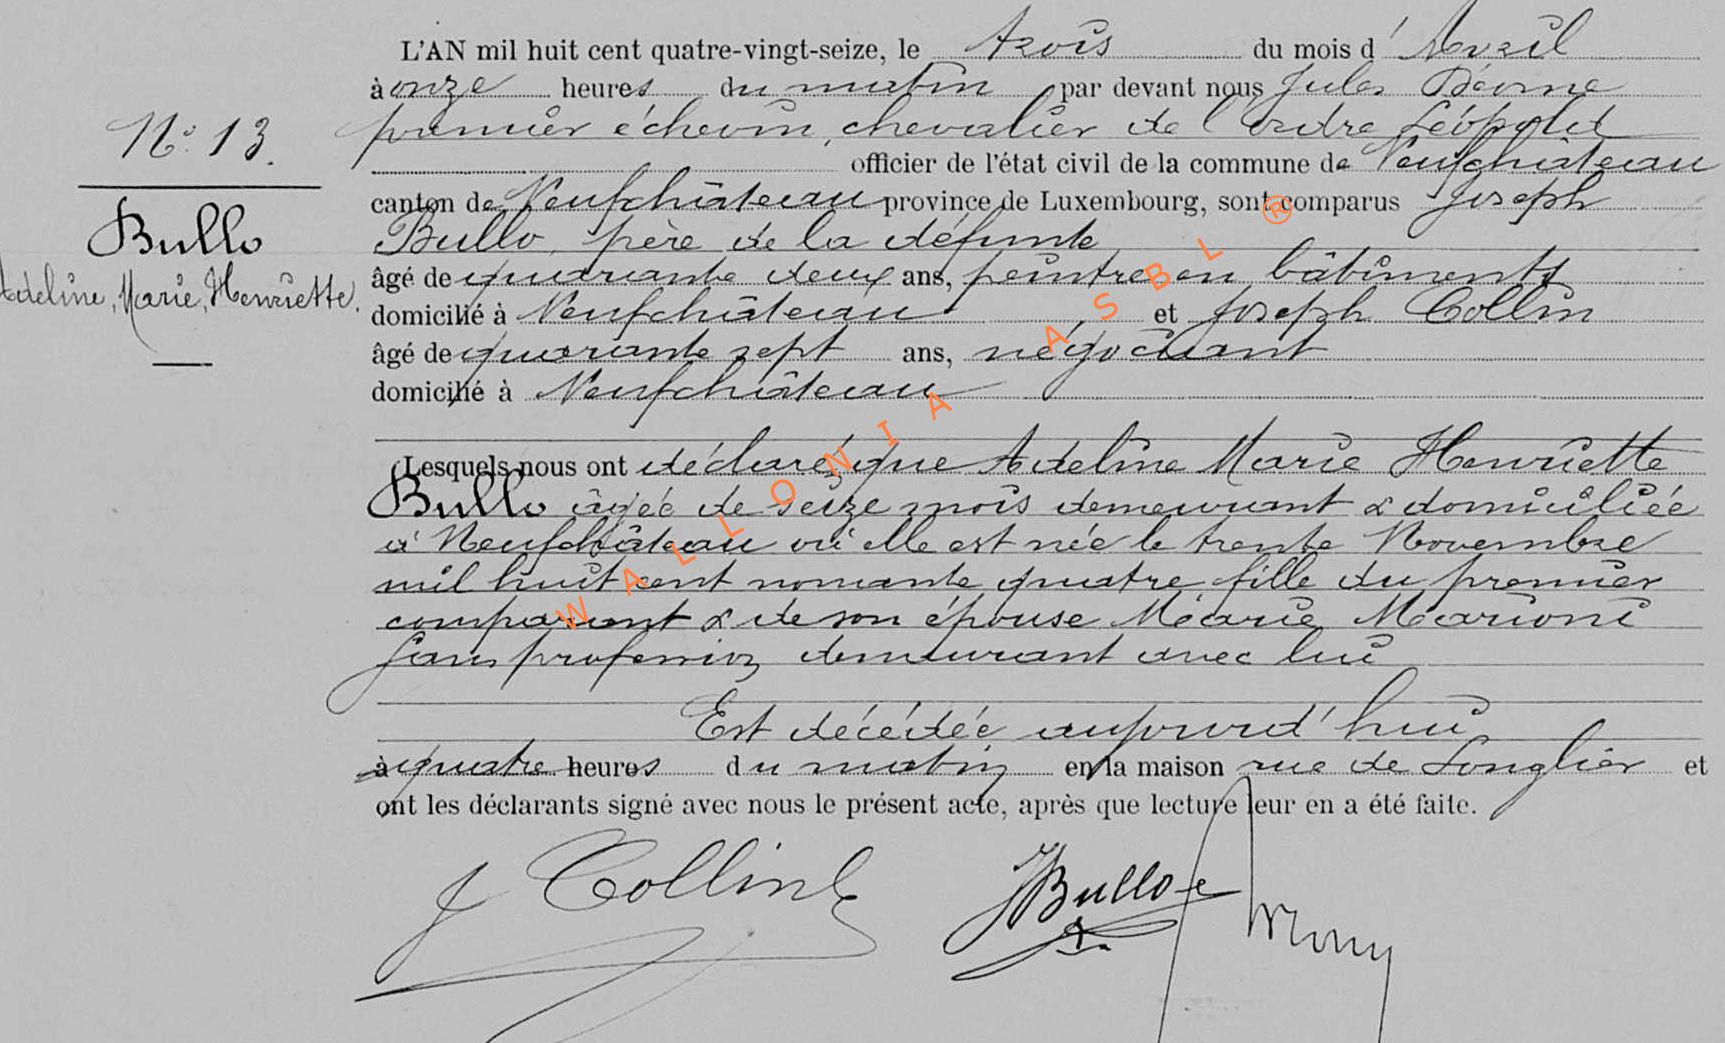 L'AN mil huit cent quatre-vingt-seize, le trois du mois d'Avril
à onze heures du matin par devant nous Jules
premier échevin, chevalier de l'ordre Léopold
officier de l'état civil de la commune de Neufchâteau
canton de Neufchâteau province de Luxembourg, sont comparus Joseph
Bullo, père de la défunte
âgé de quarante deux ans, peintre en bâtiments
domicilié à Neufchâteau et Joseph Collin
âgé de quarante sept ans, négociant
domicilié à Neufchâteau
N° 13.
Bullo
Adeline, Marie, Henriette.
Lesquels nous ont déclaré que Adeline Marie Henriette
Bullo âgée de seize mois demeurant & domiciliée
à Neufchâteau où elle est née le trente Novembre
mil huit cent nonante quatre fille du premier
comparant & de son épouse Marie Marioni
sans profession demeurant avec lui
Est décédée aujourd'hui
à quatre heures du matin en la maison rue de Longlier et
ont les déclarants signé avec nous le présent acte, après que lecture leur en a été faite.
J Collin JBullo
WALLONIA ASBL ®